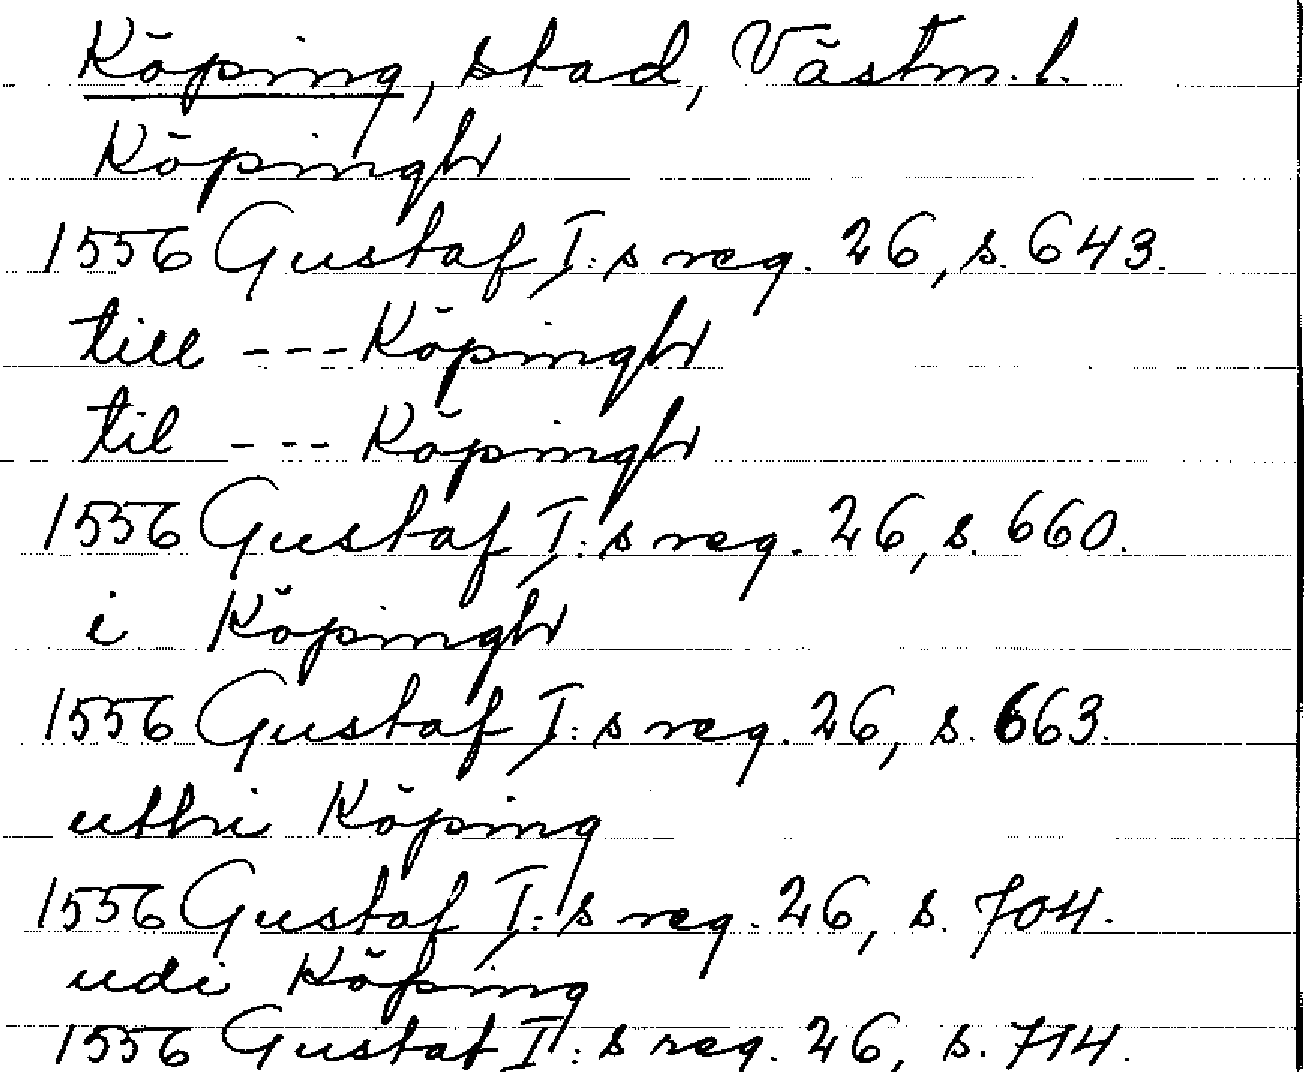 Köping, stad, Västm. l.
Köpingh
1556 Gustaf I:s reg. 26, s. 643.
till --- Köpingh
til --- Köpingh
1556 Gustaf I:s reg. 26, s. 660.
i Köpingh
1556 Gustaf I:s reg. 26, s. 663.
uthi Köping
1556 Gustaf I:s reg. 26, s. 704.
udi Köping
1556 Gustaf I:s reg. 26, s. 714.